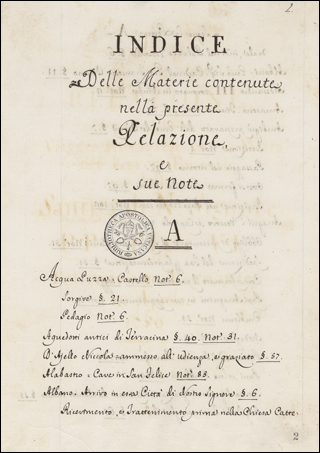 2.
INDICE
Delle Materie contenute
nella presente
Relazione,
e
sue Note
A
BIBLIOTHECA APOSTOLICA VATICANA
Acqua Puzza: Castello Not.ᵉ 6.
Sorgive §. 21
Pedagio Not.ᵉ 6.
Aquedotti antici di Terracina §. 40. Not.ᵉ 31.
D'Ajello Nicola: ammesso all'udienza, e graziato §. 57.
Alabastro: Cave in San Felice Not.ᵉ 83.
Albano: Arrivo in essa Città di Nostro Signore §. 6.
Ricevimento, e Trattenimento prima nella Chiesa Catte-
2